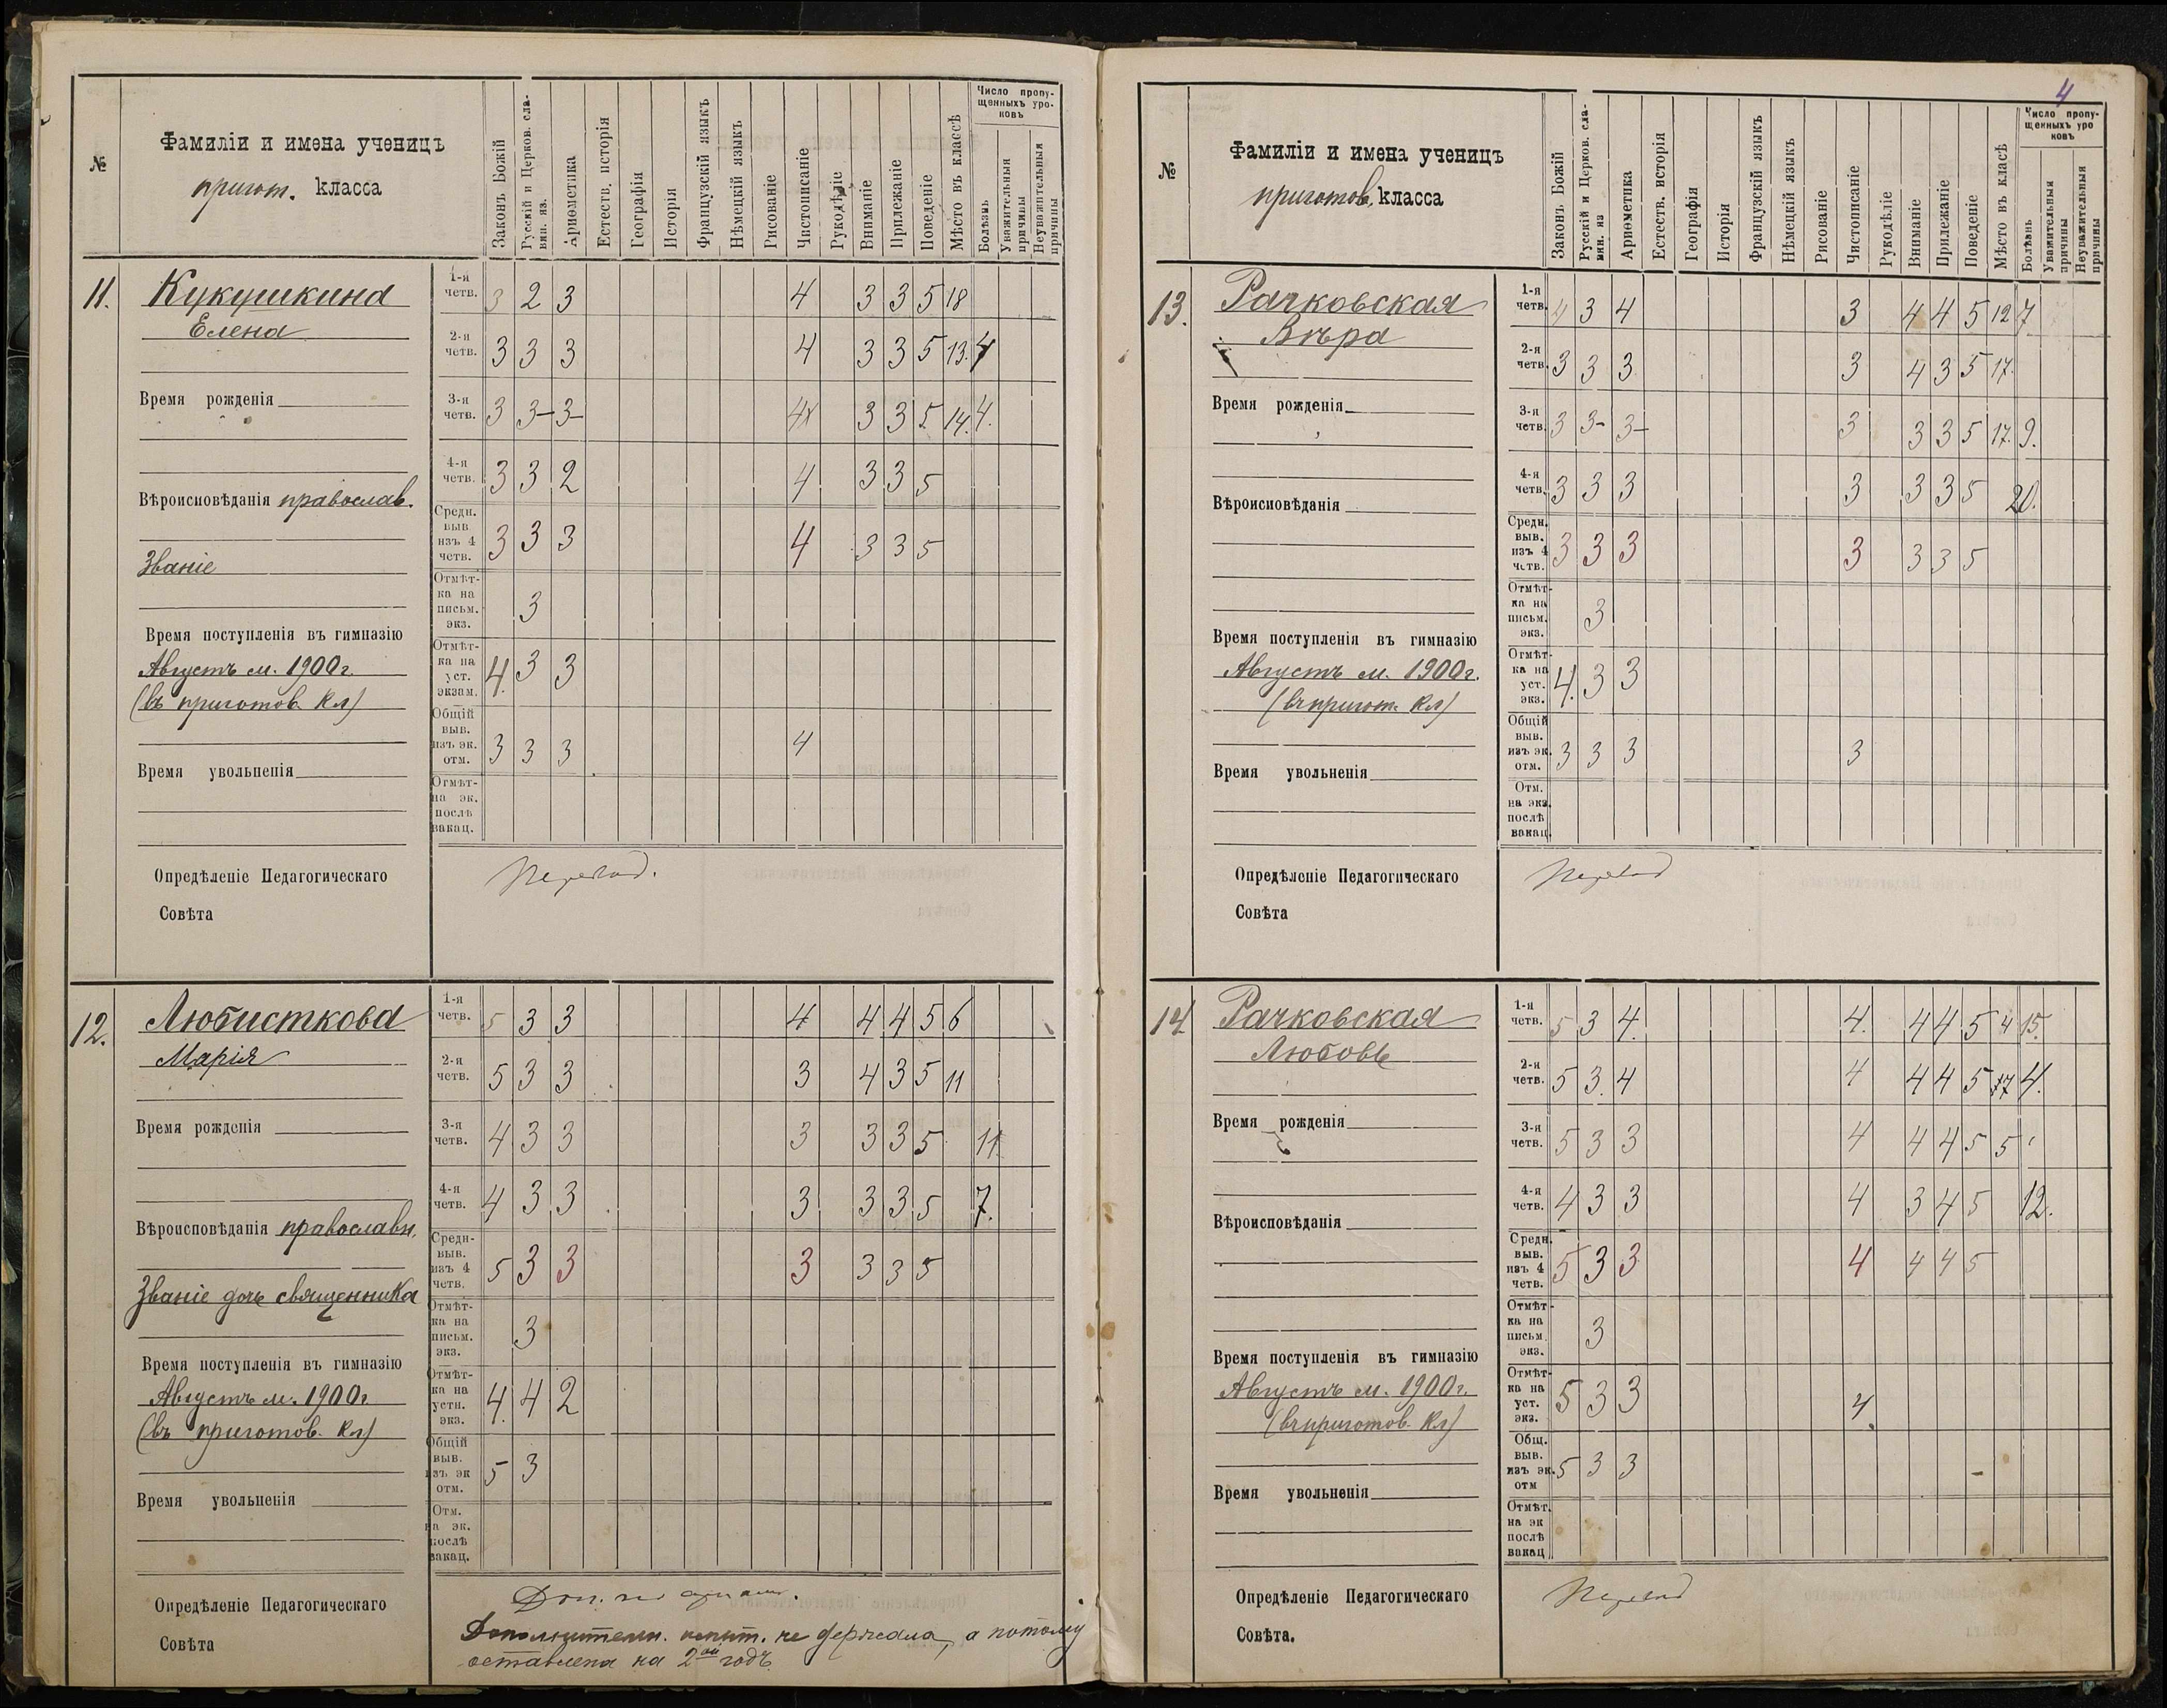 №
Фамиліи и имена ученицъ
пригот. класса
Законъ Божій
Русскій и Церков. сла-
вян. яз.
Ариѳметика
Естеств. исторія
Географія
Исторія
Французскій языкъ
Нѣмецкій языкъ
Рисованіе
Чистописаніе
Рукодѣліе
Вниманіе
Прилежаніе
Поведеніе
Мѣсто въ классѣ
Число пропу-
щенныхъ уро-
ковъ
Болѣзнь
Уважительныя
причины
Неуважительныя
причины
11. Кукушкина
Елена
Время рожденія
Вѣроисповѣданія православ.
Званіе
Время поступленія въ гимназію
Августъ м. 1900 г.
(въ приготов. кл)
Время увольненія
1-я четв. 3 2 3 4 3 3 5 18
2-я четв. 3 3 3 4 3 3 5 13. 4
3-я четв. 3 3- 3- 4 3 3 5 14. 4.
4-я четв. 3 3 2 4 3 3 5
Средн. выв изъ 4 четв. 3 3 3 4 3 3 5
Отмѣт-ка на письм. экз. 3
Отмѣт-ка на уст. экзам. 4. 3 3
Общій выв. изъ эк. отм. 3 3 3 4
Отмѣт-на эк. послѣ вакац.
Опредѣленіе Педагогическаго
Совѣта
12. Любисткова
Марія
Время рожденія
Вѣроисповѣданія православн.
Званіе дочь священника
Время поступленія въ гимназію
Августъ м. 1900 г
(въ приготов. кл)
Время увольненія
1-я четв. 5 3 3 4 4 4 5 6
2-я четв. 5 3 3 3 4 3 5 11
3-я четв. 4 3 3 3 3 3 5 11.
4-я четв. 4 3 3 3 3 3 5 7.
Средн-выв. изъ 4 четв. 5 3 3 3 3 3 5
Отмѣт-ка на письм. экз. 3
Отмѣт-ка на устн. экз. 4. 4 2
Общій выв. изъ эк отм. 5 3
Отм. на эк. послѣ вакац.
Опредѣленіе Педагогическаго
Совѣта
Дополнительн. испыт. не держала, а потому
оставлена на 2ой годъ
4
№
Фамиліи и имена ученицъ
приготов. класса
Законъ Божій
Русскій и Церков. сла-
вян. яз
Ариѳметика
Естеств. исторія
Географія
Исторія
Французскій языкъ
Нѣмецкій языкъ
Рисованіе
Чистописаніе
Рукодѣліе
Вниманіе
Прилежаніе
Поведеніе
Мѣсто въ класѣ
Число пропу-
щенныхъ уро
ковъ
Болѣзнь
Уважительныя
причины
Неуважительныя
причины
13. Рачковская
Вѣра
Время рожденія
Вѣроисповѣданія
Время поступленія въ гимназію
Августъ м. 1900 г.
(въ пригот. кл)
Время увольненія
1-я четв. 4 3 4 3 4 4 5 12 7
2-я четв. 3 3 3 3 4 3 5 17.
3-я четв. 3 3- 3- 3 3 3 5 17. 9.
4-я четв. 3 3 3 3 3 3 5 20.
Средн. выв. изъ 4 четв. 3 3 3 3 3 3 5
Отмѣт-ка на письм. экз. 3
Отмѣт-ка на уст. экз. 4. 3 3
Общій выв. изъ эк. отм. 3 3 3 3
Отм. на экз. послѣ вакац.
Опредѣленіе Педагогическаго
Совѣта
14. Рачковская
Любовь
Время рожденія
Вѣроисповѣданія
Время поступленія въ гимназію
Августъ м. 1900 г.
(въ приготов. кл)
Время увольненія
1-я четв. 5 3 4. 4. 4 4 5 4 15.
2-я четв. 5 3. 4 4 4 4 5 4.
3-я четв. 5 3 3 4 4 4 5 5
4-я четв. 4 3 3 4 3 4 5 12.
Средн. выв. изъ 4 четв. 5 3 3 4 4 4 5
Отмѣт-ка на письм. экз. 3
Отмѣт-ка на уст. экз. 5 3 3 4.
Общ. выв. изъ эк. отм 5 3 3
Отмѣт. на эк послѣ вакац
Опредѣленіе Педагогическаго
Совѣта.